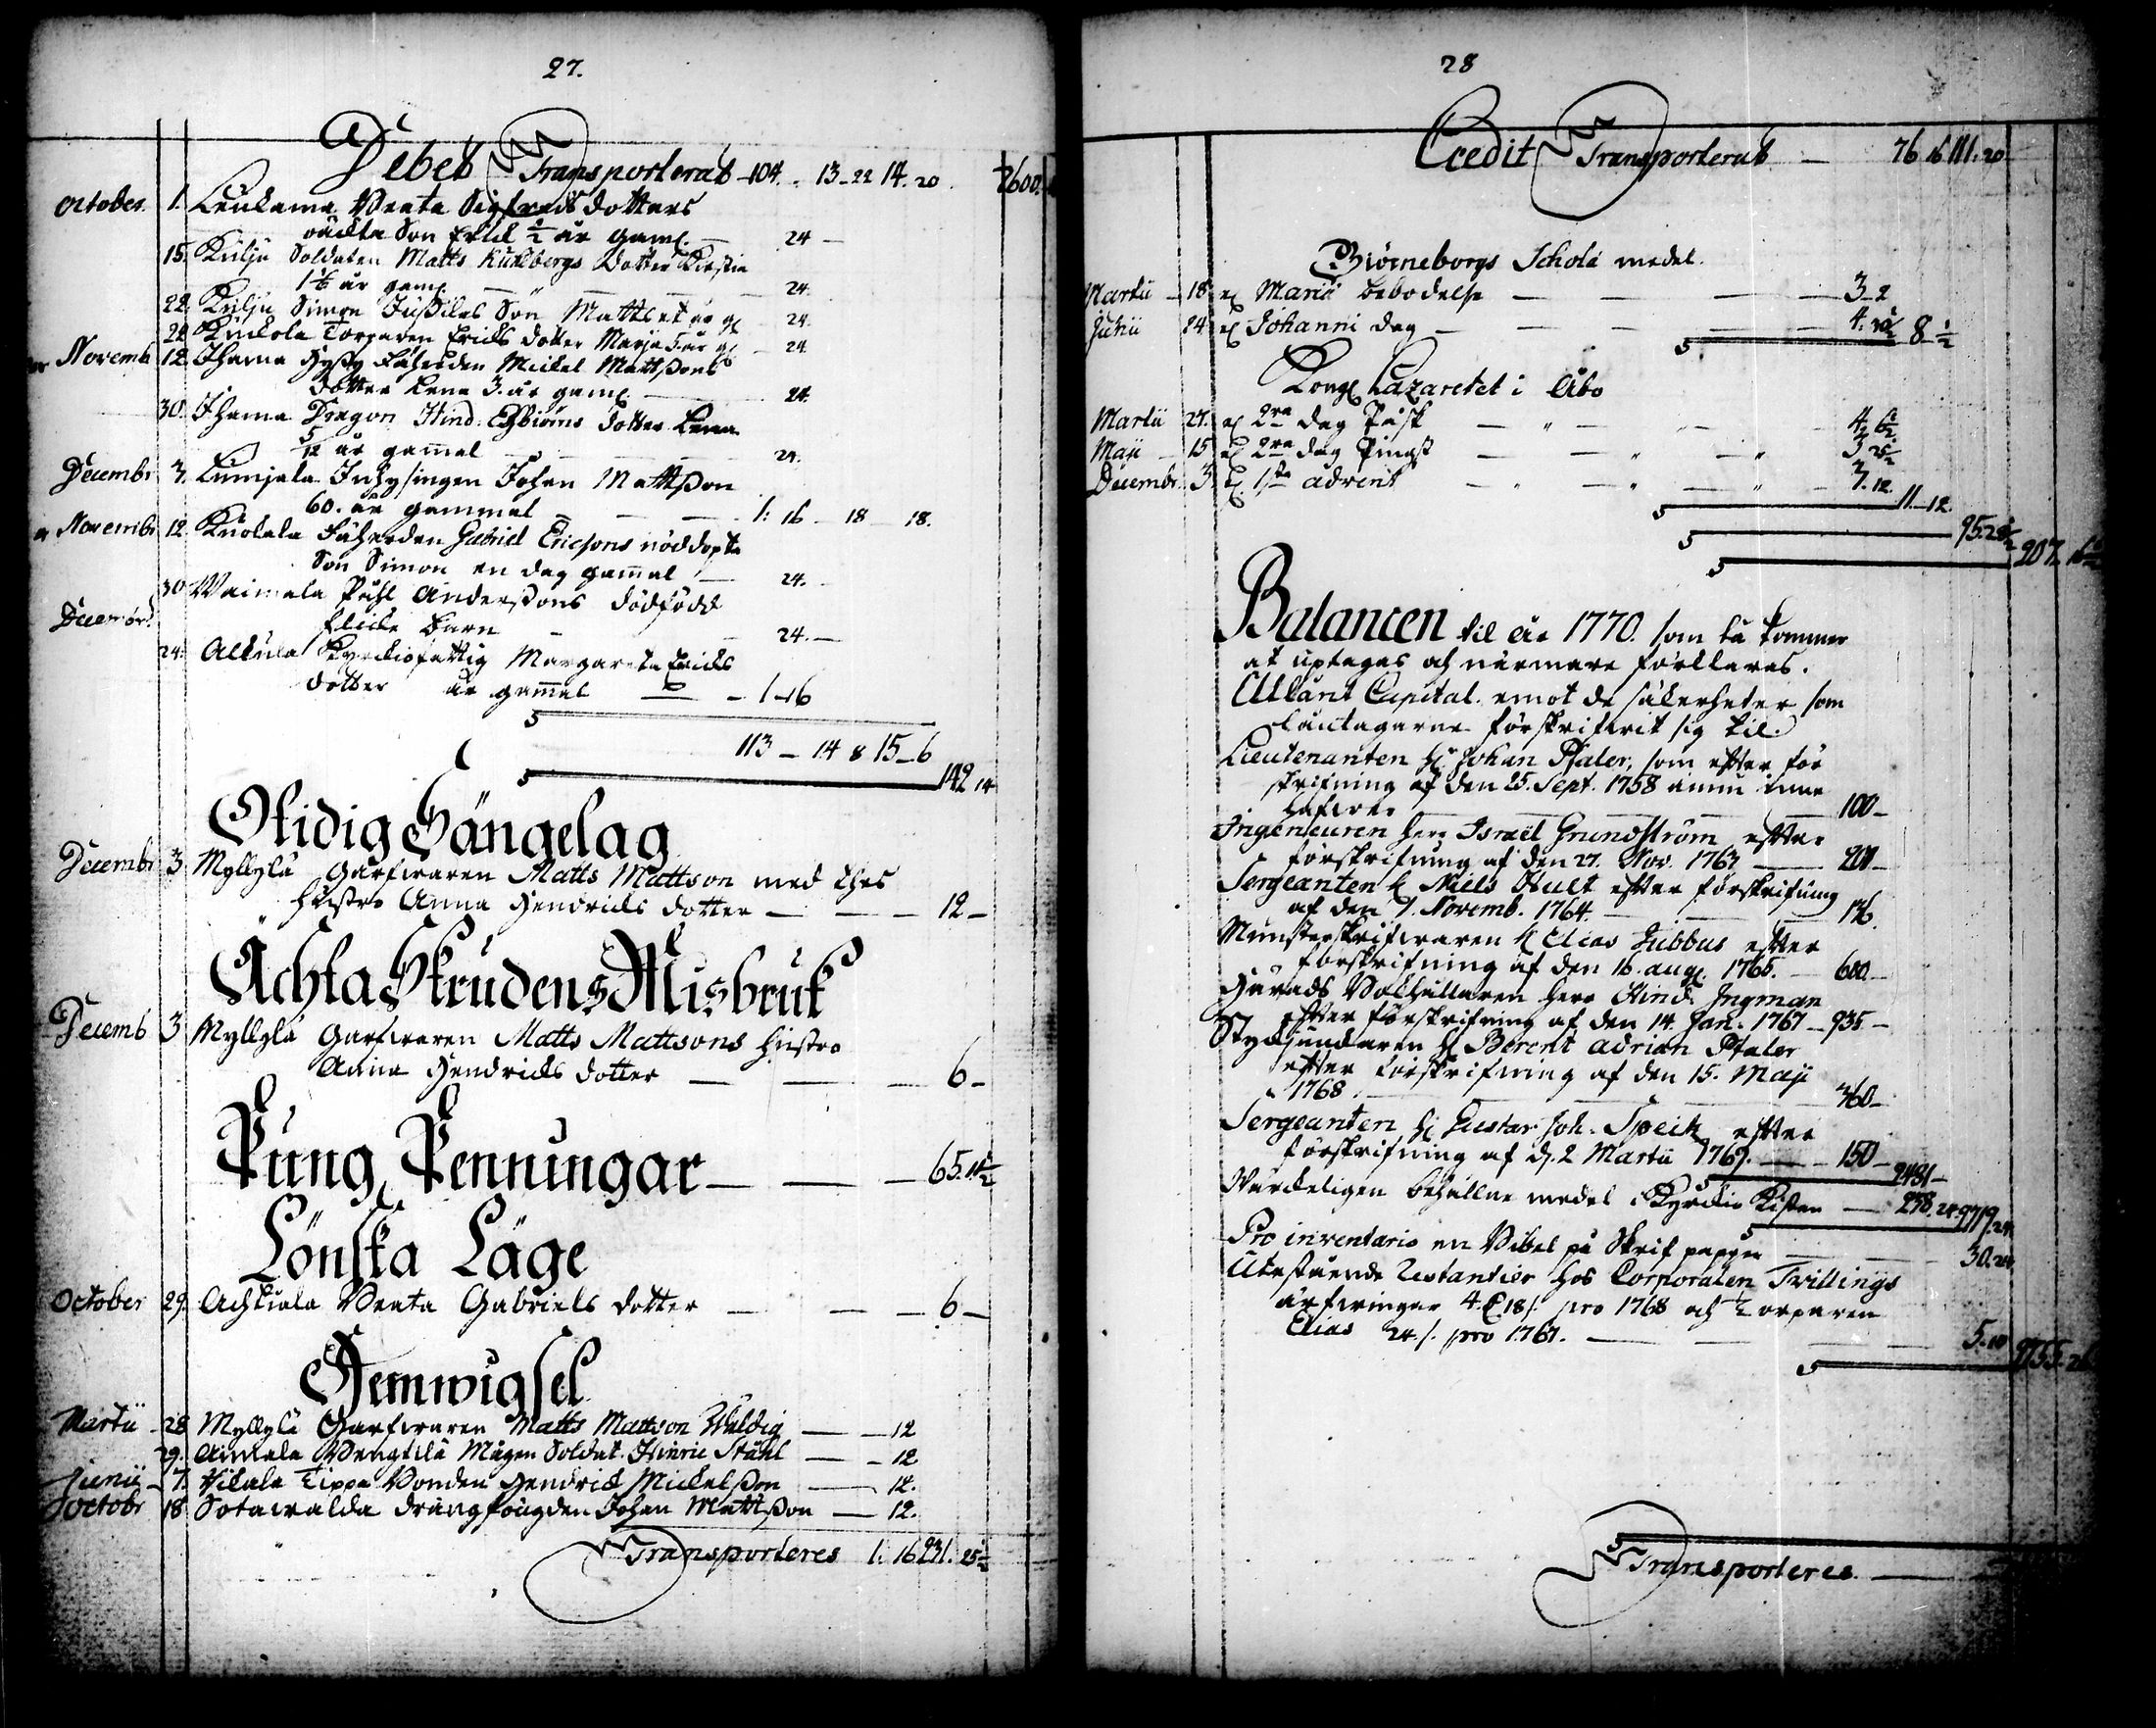 27.
Debet Transporterat 104. 13-22 14. 20. 2600.
October. 1. Leukama Beata Sigfreds dotters
oäckta Son Erik ½ år gaml. 24
15. Kulju Soldaten Matts Kuhlbergs Dotter Kirstin
år gaml. 24.
22. Kulju Simon Jussilas Son Matts et år gl 24.
22. Torparen Erics dotter Marja år gl 24
Novemb. 12. Thama Hyssy Fäherden Mickel Mattssons
dotter Lena 3. år gaml. 24.
30. Thama Dragon Hind. dotter Lena
5/12 år gam̄al 24.
Decembr 3. Lumjala Inhysingen Johan Mattsson
60. år gammal 1: 16 18 18.
Novembr 12. Kuolala Fäherden Gabriel Ericsons nöddöpta
Son Simon en dag gam̄al 24.
30 Waimala Påhl Anderssons dödfödd
flicke barn 24.
Decembr.
24. Allula Kyrckiofattig Margareta Erics
dotter år gam̄al 1-16
113 - 14 8 15-6
142 14
Otidig Sängelag
Decembr 3 Myllylä Garfwaren Matts Mattson med thes
hustro Anna Hendricks dotter 12
Ächta Skrudens Misbruk
Decemb 3 Myllylä Garfwaren Matts Mattsons hustro
Anna Hendricks dotter 6
Pung Penningar 65.
Lönska Läge
October 29. Achkiala Beata Gabriels dotter 6
Hemwigsel
Martii 28 Myllylä Garfwaren Matts Mattson 12
29. Anmala Bengtilä Mågen Soldat. Hinric Ståhl 12
Junii 7. Vikala Tippa Bonden Hendrick Mickelsson 12.
Octobr 18 Sotawalda drängfougden Johan Mattsson 12.
Transporteres 1. 16 231. 25½
28
Credit Transporterat 76 16 111. 20
Biörneborgs Schola medel.
Martii 18 ex Mariä bebodelse 3 2
Junii 24 ex Johanni dag 4. 30½ 8 ½
Kongl Lazaretet i Åbo
Martii 27. ex 2ra dag Påsk 4 6½
Maji 15 ex 2ra dag Pingst 3 25½
Decembr. 3 ex 1sta advent 3. 12
11 12.
95. 28½
207. 16½
Balancen til år 1770. som tå kommer
at uptagas och närmare förklaras.
Utlånt Capital. emot de säkerheter som
låntagarne förskrifwit sig til.
Lieutenanten H. Johan Pfaler, som efter för
skrifning af den 25. Sept. 1758 ännu inne
hafwer 100
Ingeneuren Herr Israël Grundström efter
förskrifning af den 27. Nov. 1763 201
Sergeanten H Niels Hult efter förskrifning
af den 1. Novemb. 1764.
Munsterskrifwaren H Elias Jubbus efter
förskrifning af den 16. aug. 1765. 600
Härads Bokhållaren herr Hind. Ingman
efter förskrifning af den 14. Jan. 1767 935
Styckjunckaren H. Berent Adrian Pfaler
efter förskrifning af den 15. Maji
1768 360
Sergeanten H. Gustav Joh. Speitz efter
förskrifning af d. 2 Martii 1769. 150
2481
Wärckeligen behållne medel i Kyrckio Kistan 238. 24. 2719. 24
Pro inventario en Bibel på Skrif papper 30. 24
Utestående Restantier hos Corporalen Trillings
ärfwingar 4. D. 18/. pro 1768 och Torparen
Elias 24./. pro 1767. 5. 10
2755. 26
Transporteres